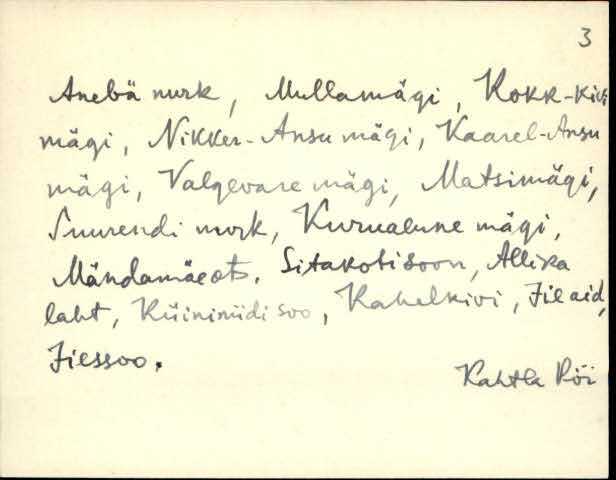 3
Anebä nurk, Mullamägi, Kokk-Kivi
mägi, Nikker-Ansu mägi, Kaarel-Ansu
mägi, Valgevare mägi, Matsimägi,
Suurendi nurk, Kurualune mägi,
Mändamäeots. Sitakotisoon, Allika
laht, Küininiidi soo, Kahelkivi, Jileaid,
Jilessoo.
Kahtla Pöi